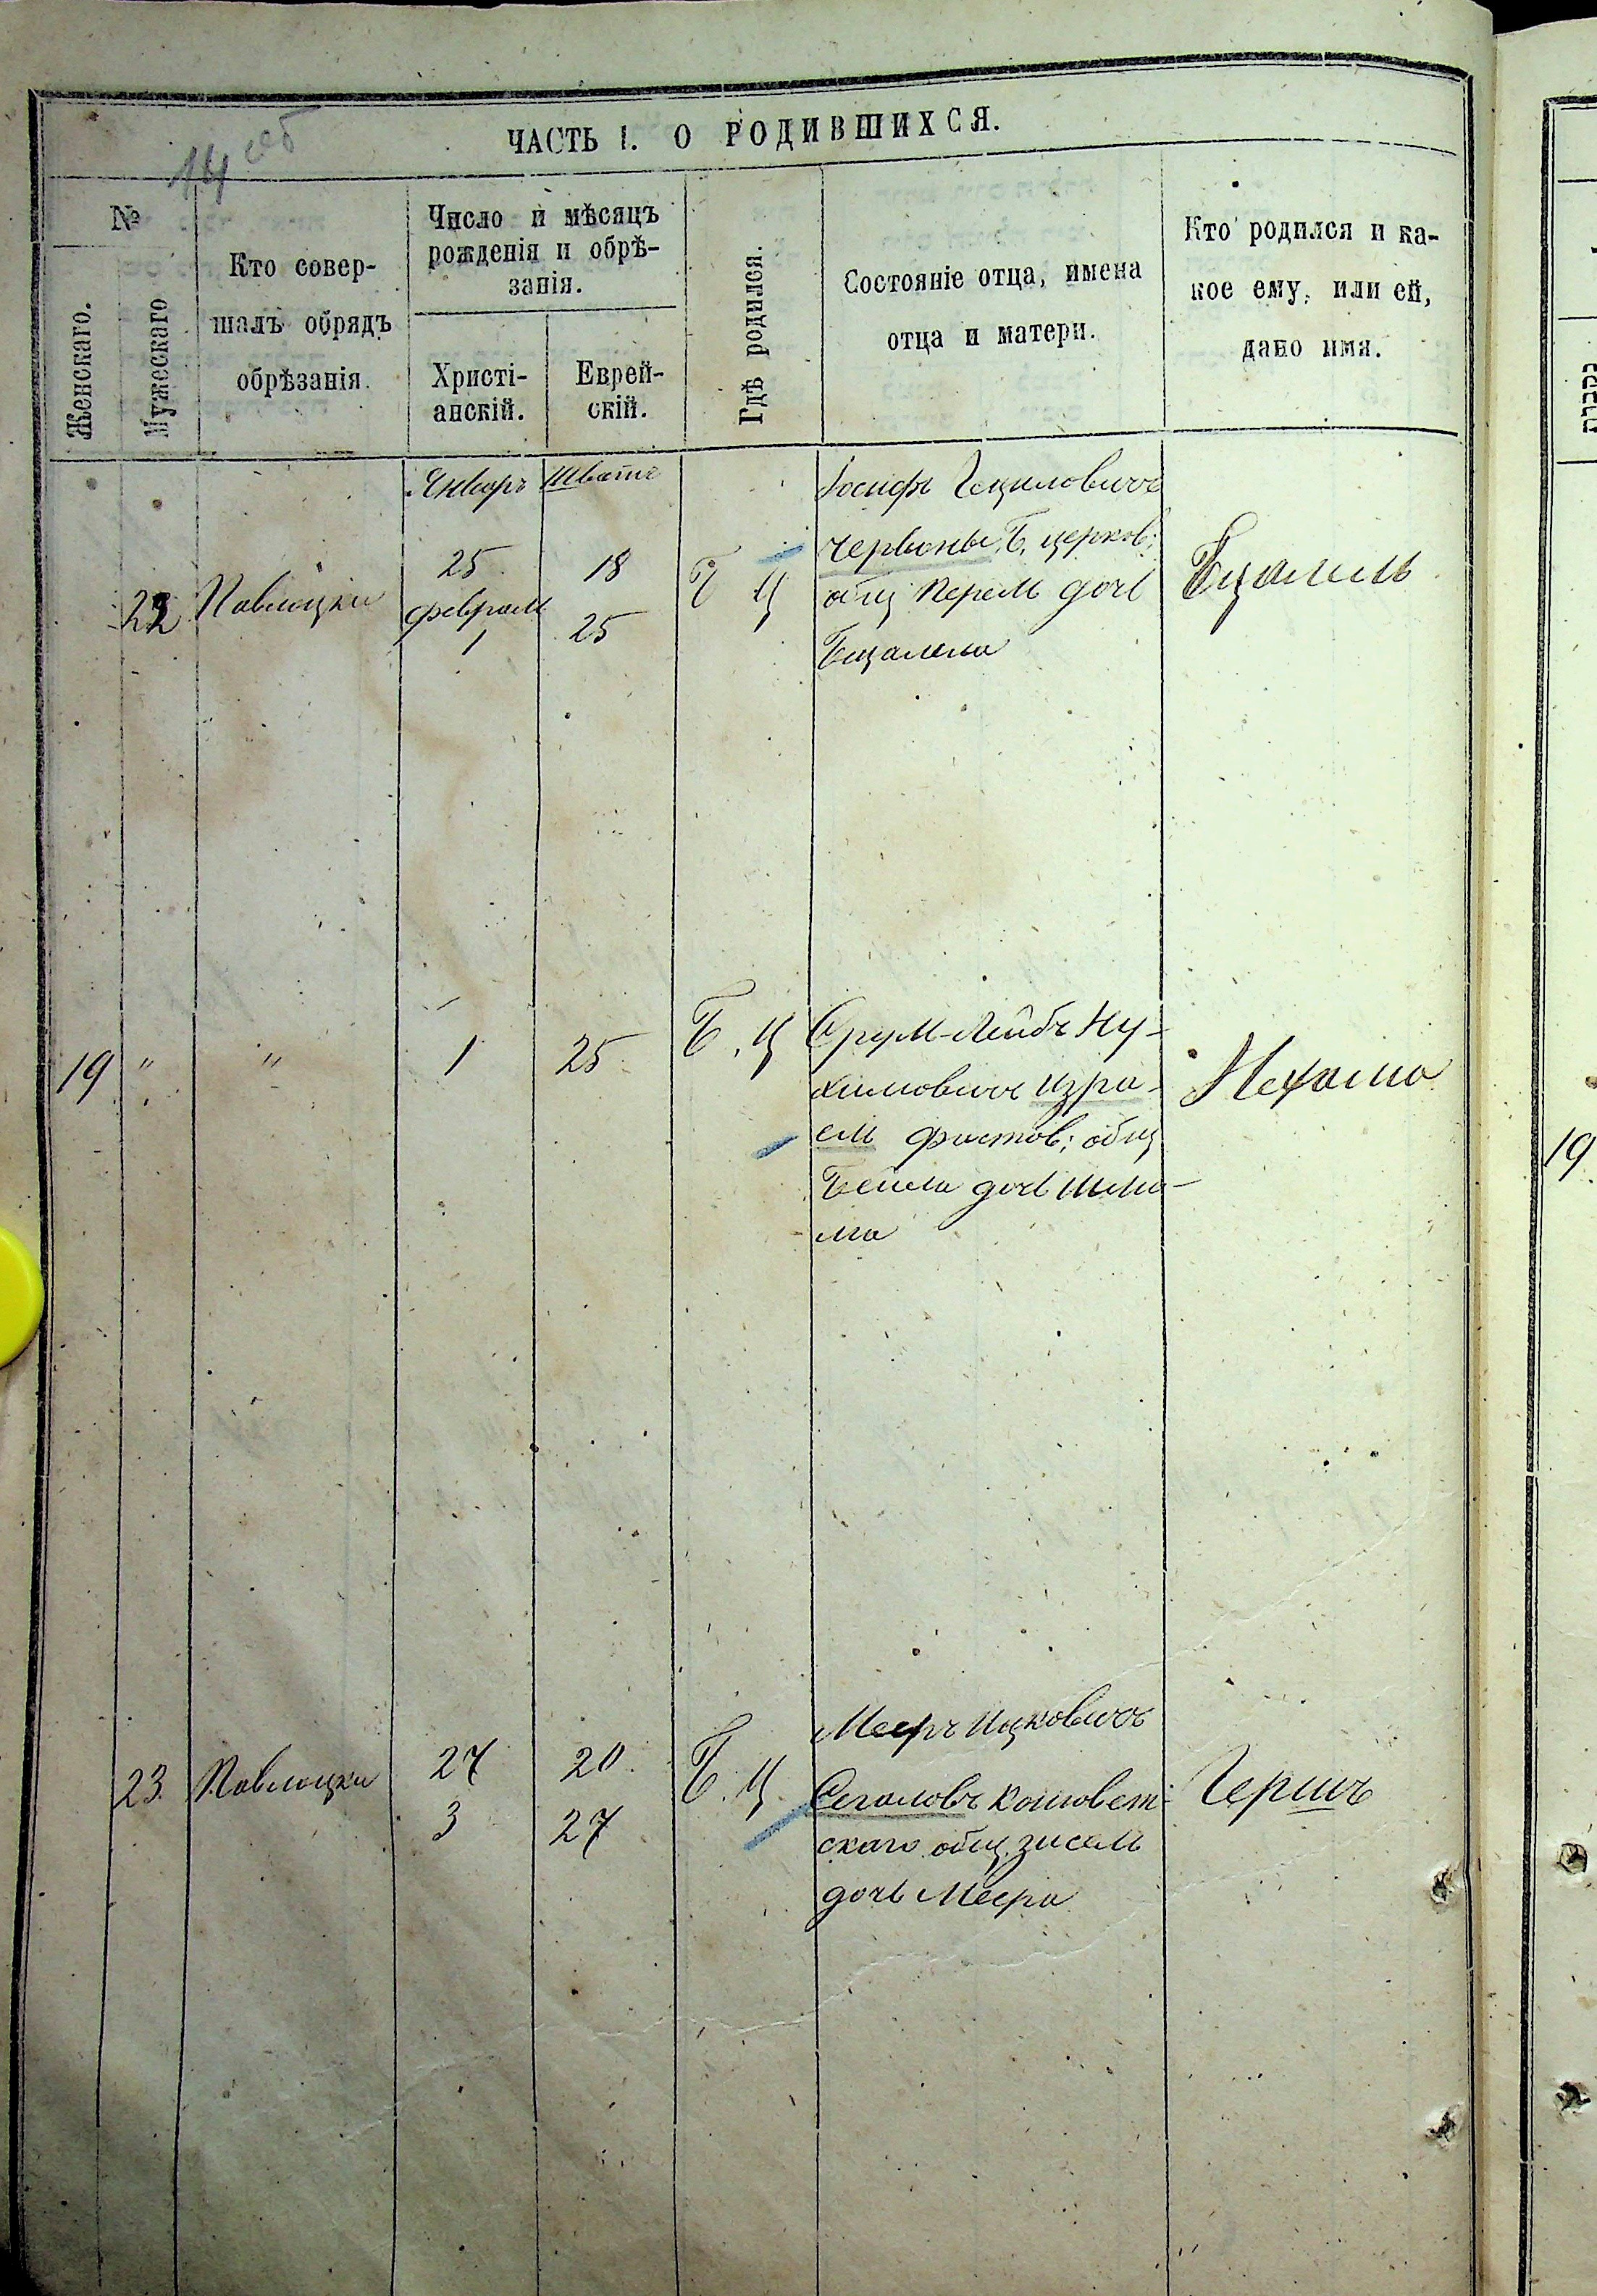 14 об
ЧАСТЬ I. О РОДИВШИХСЯ.
№
Женскаго.
Мужескаго
Кто совер-
шалъ обрядъ
обрѣзанія.
Число и мѣсяцъ
рожденія и обрѣ-
занія.
Христі-
анскій.
Еврей-
скій.
Гдѣ родился.
Состояніе отца, имена
отца и матери.
Кто родился и ка-
кое ему, или ей,
дано имя.
Январь Шватъ
22 Павлоцки
25 18
февраль
1 25
Б Ц
Іосифъ Гециловичъ
Червоны Б. церков:
общ Перель дочь
Бецалеля
Бецалель
19 " "
1 25
Б. Ц
Срул-Лейбъ Ну-
химовичъ Изра-
ель фастов: общ
Бейла дочь Шлио-
ма
Нехама
23 Павлоцки
27 20
3 27
Б. Ц.
Мееръ Ицковичъ
Сегаловъ Кошоват-
скаго общ. Зисель
дочь Меера
Гершъ
19